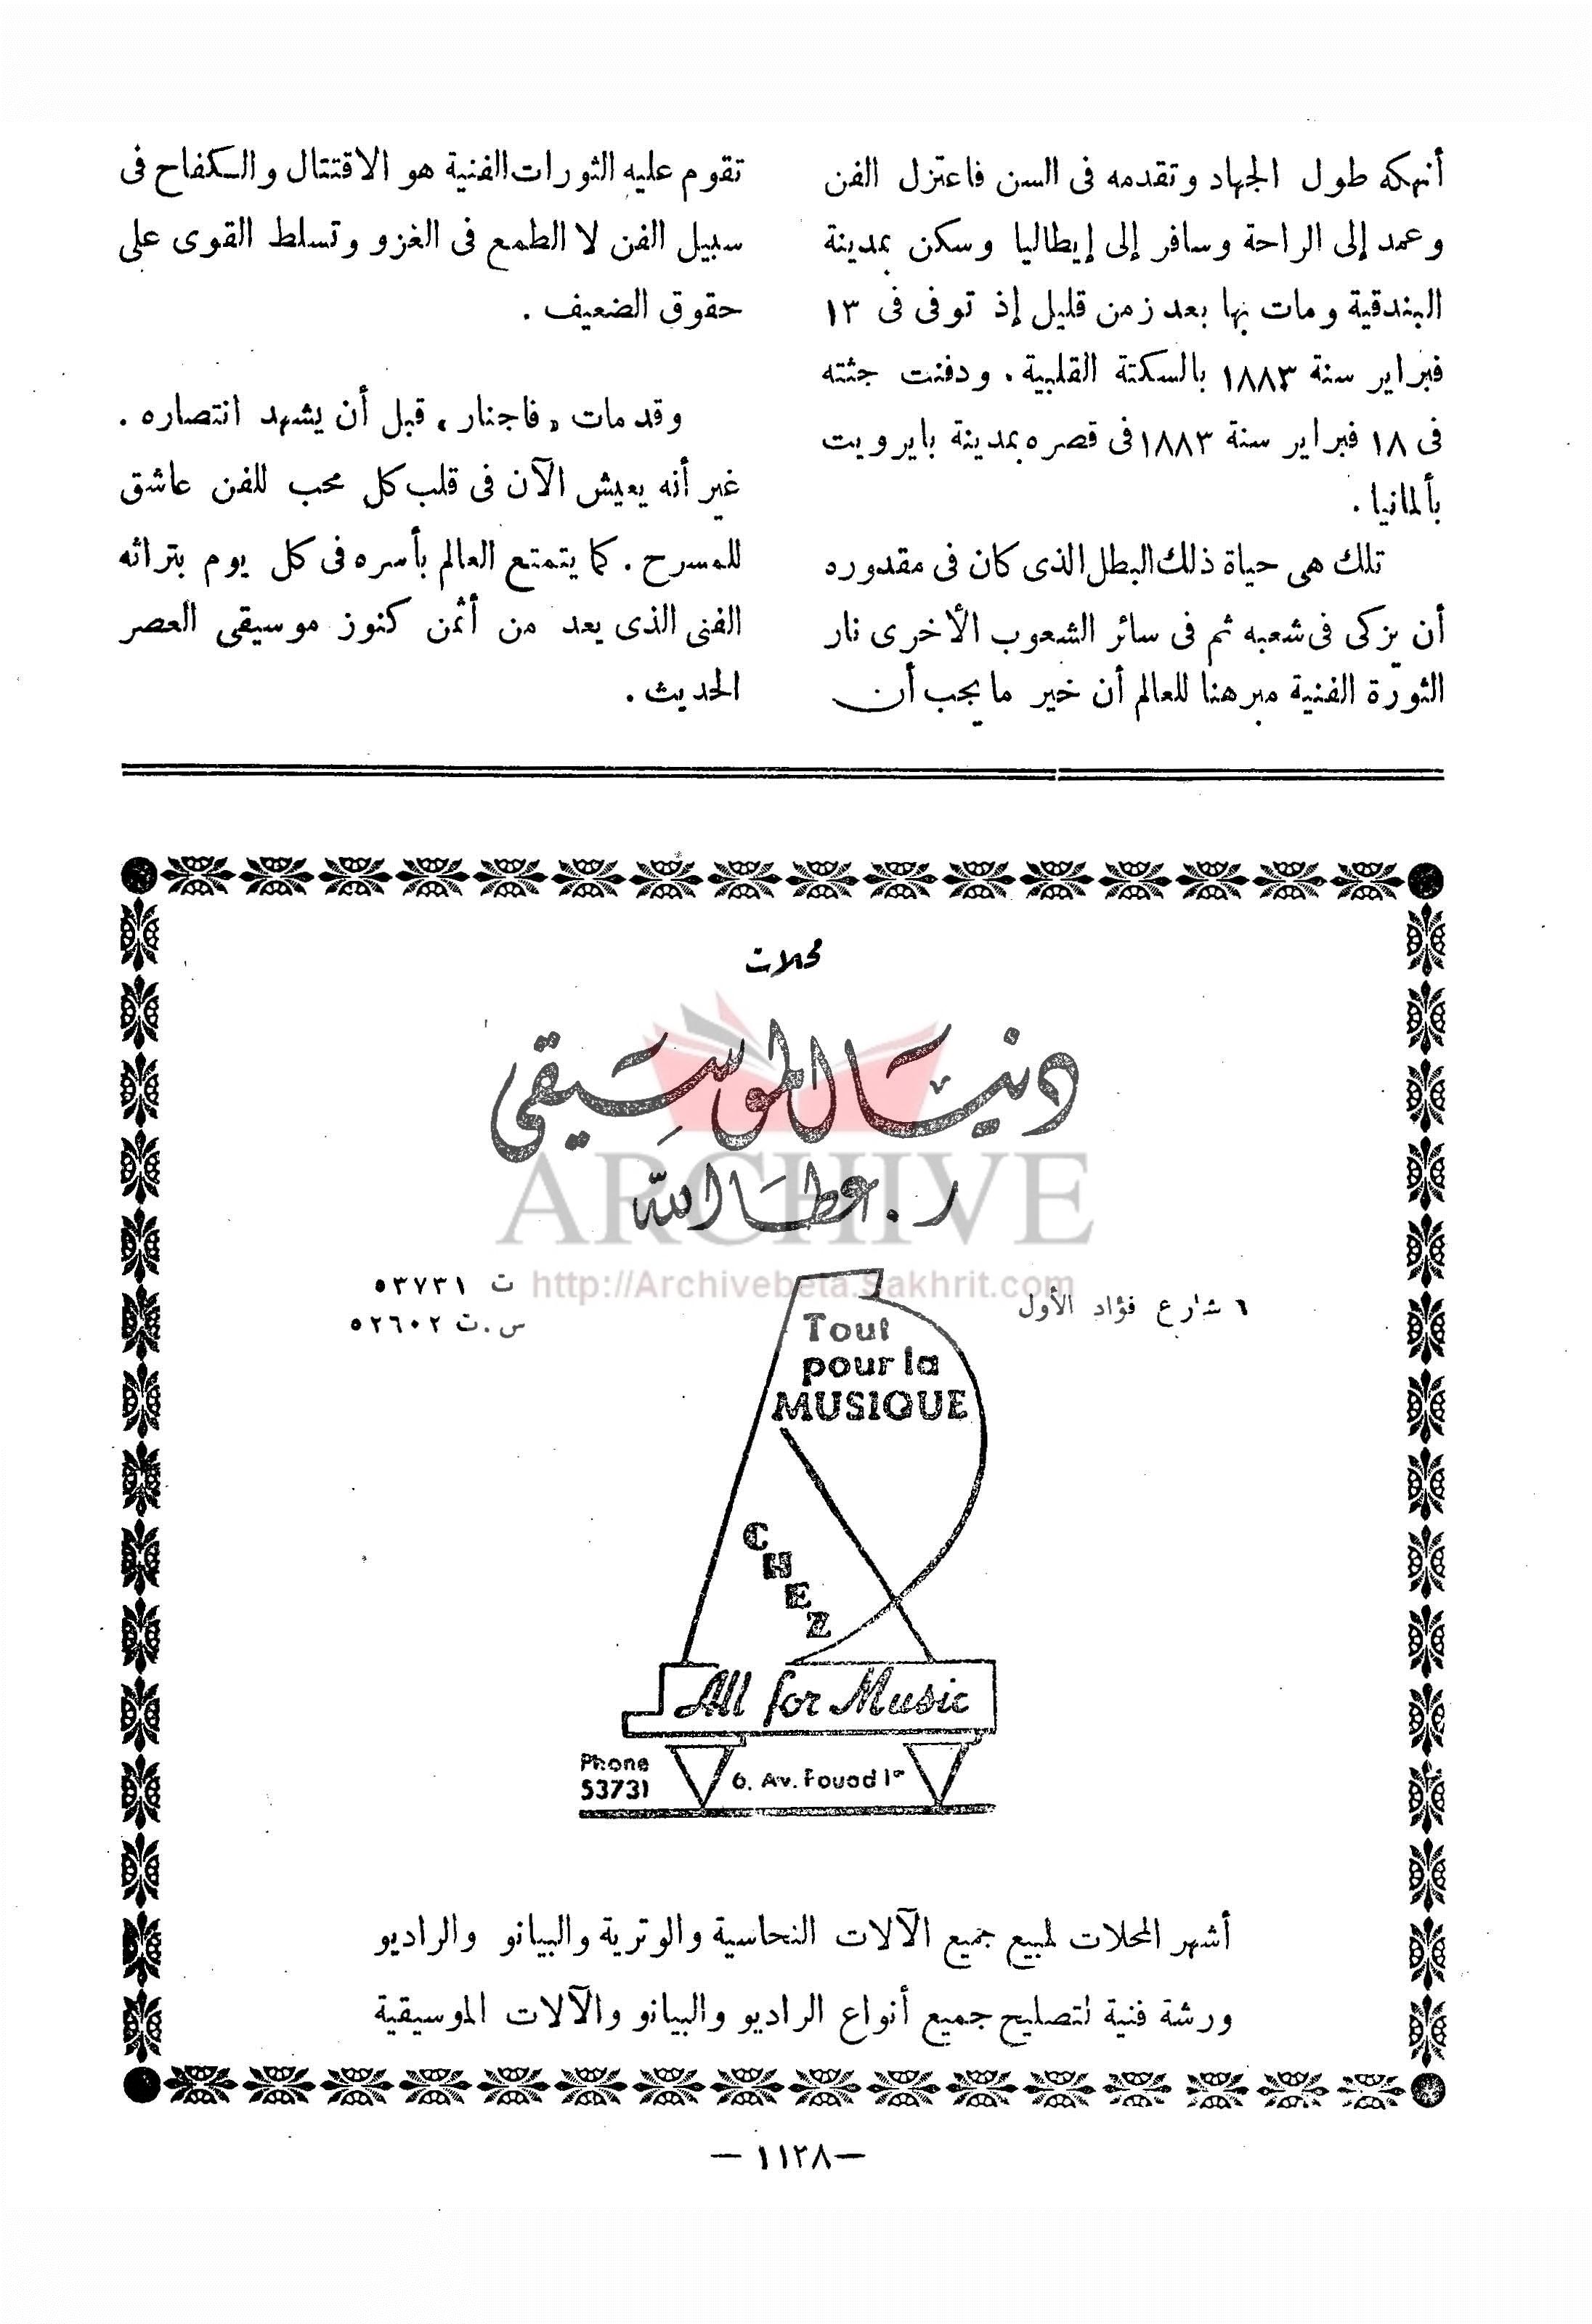 أنهكه طول الجهاد وتقدمه فى السن فاعتزل الفن
وعمد إلى الراحة وسافر إلى إيطاليا وسكن بمدينة
البندقية ومات بها بعد زمن قليل إذ توفى فى ١٣
فبراير سنة ١٨٨٣ بالسكتة القلبية . ودفنت جثته
فى ١٨ فبراير سنة ١٨٨٣ فى قصره بمدينة بايرويت
بألمانيا .
تلك هى حياة ذلك البطل الذى كان فى مقدوره
أن يزكى فى شعبه ثم فى سائر الشعوب الأخرى نار
الثورة الفنية مبرهنا للعالم أن خير ما يجب أن
تقوم عليه الثورات الفنية هو الاقتتال والكفاح فى
سبيل الفن لا الطمع فى الغزو وتسلط القوى على
حقوق الضعيف .
وقد مات « فاجنار » قبل أن يشهد انتصاره .
غير أنه يعيش الآن فى قلب كل محب للفن عاشق
للمسرح . كما يتمتع العالم بأسره فى كل يوم بتراثه
الفنى الذى يعد من أثمن كنوز موسيقى العصر
الحديث .
محلات
دنيا الموسيقى
ر . عطا الله
ARCHIVE
http://Archivebeta.Sakhrit.com
٦ شارع فؤاد الأول
ت ٥٣٧٣١
س . ت ٥٢٦٠٢
Tout
pour la
MUSIQUE
CHEZ
All for Music
Phone
53731
6. Av. Fouad 1er
أشهر المحلات لمبيع جميع الآلات النحاسية والوترية والبيانو والراديو
ورشة فنية لتصليح جميع أنواع الراديو والبيانو والآلات الموسيقية
— ١١٢٨ —